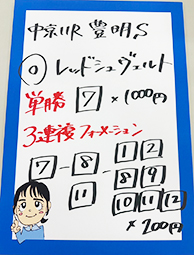 中京11R 豊明S
◎ レッドシュヴェルト
単勝 7 × 1000円
3連複フォーメーション
7 - 8 - 1 2
11 8 9
10 11 12
× 200円